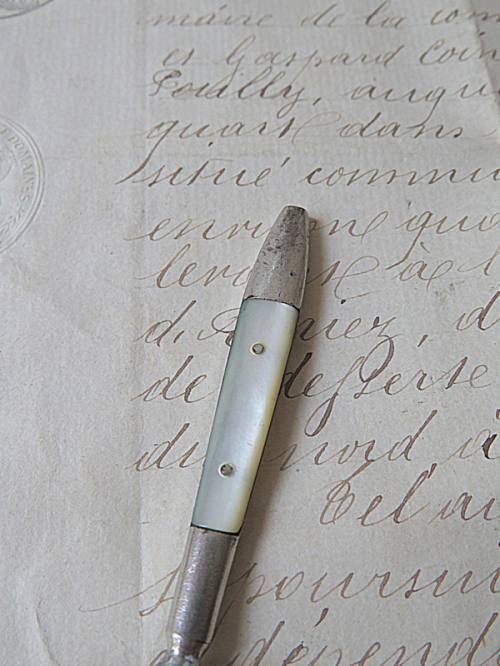 maire de la com
et Gaspard Coin
Pouilly, augu
quart dans
situé commu
environ qua
levant à l
d. Arniez, d
de desserte
du nord à
Tel au
poursui
dépend
DOMAINES